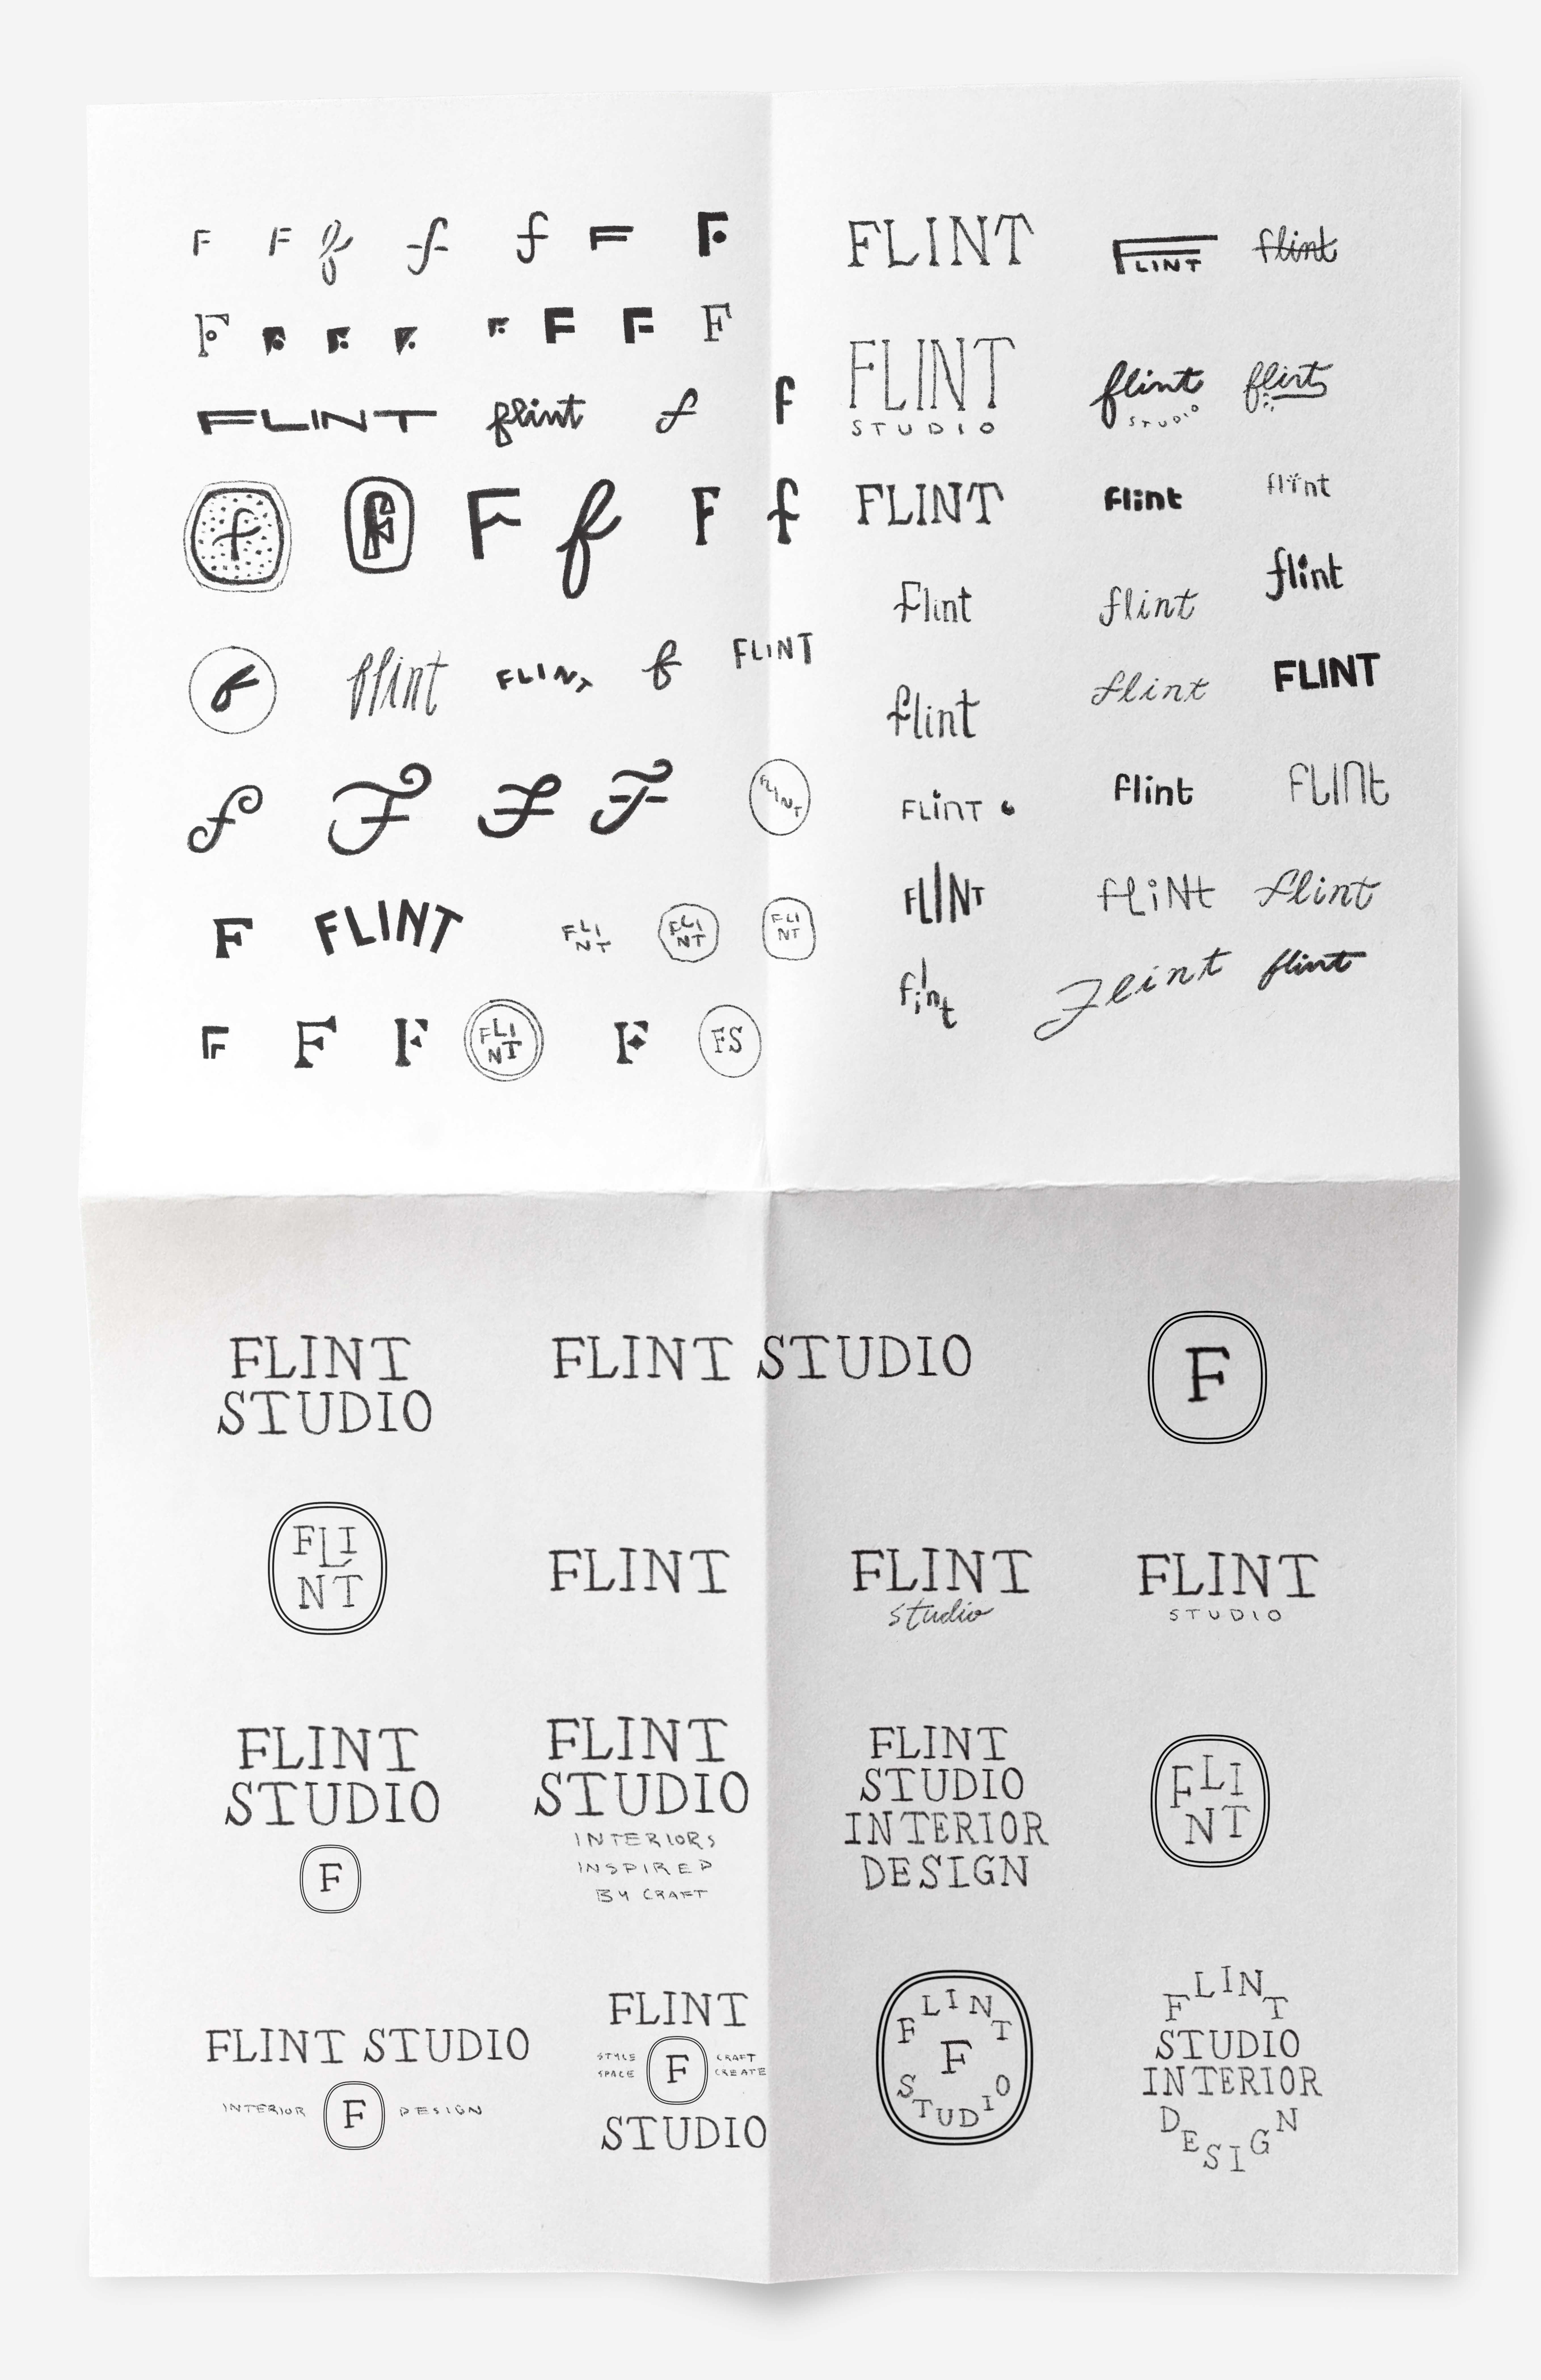 F F f f f F F
F F F F F F F F
FLINT flint f f
f F F f F f
f flint FLINT f FLINT
f F F F FLINT
F FLINT FLI
NT FLI
NT FLI
NT
F F F FLI
NT F FS
FLINT FLINT flint
FLINT
STUDIO
flint
STUDIO
flint
FLINT flint flint
Flint flint flint
flint flint FLINT
FLINT flint FLINT
FLINT fLiNt flint
flint flint flint
FLINT
STUDIO
FLINT STUDIO
F
FLI
NT
FLINT
FLINT
studio
FLINT
STUDIO
FLINT
STUDIO
F
FLINT
STUDIO
INTERIORS
INSPIRED
BY CRAFT
FLINT
STUDIO
INTERIOR
DESIGN
FLI
NT
FLINT STUDIO
INTERIOR F DESIGN
FLINT
STYLE F CRAFT
SPACE CREATE
STUDIO
FLINT
F
STUDIO
FLINT
STUDIO
INTERIOR
DESIGN